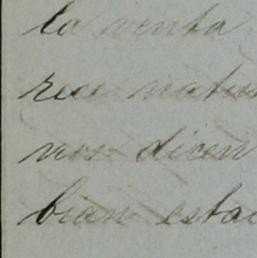 la venta
rece natu
nos dicen
bian esta